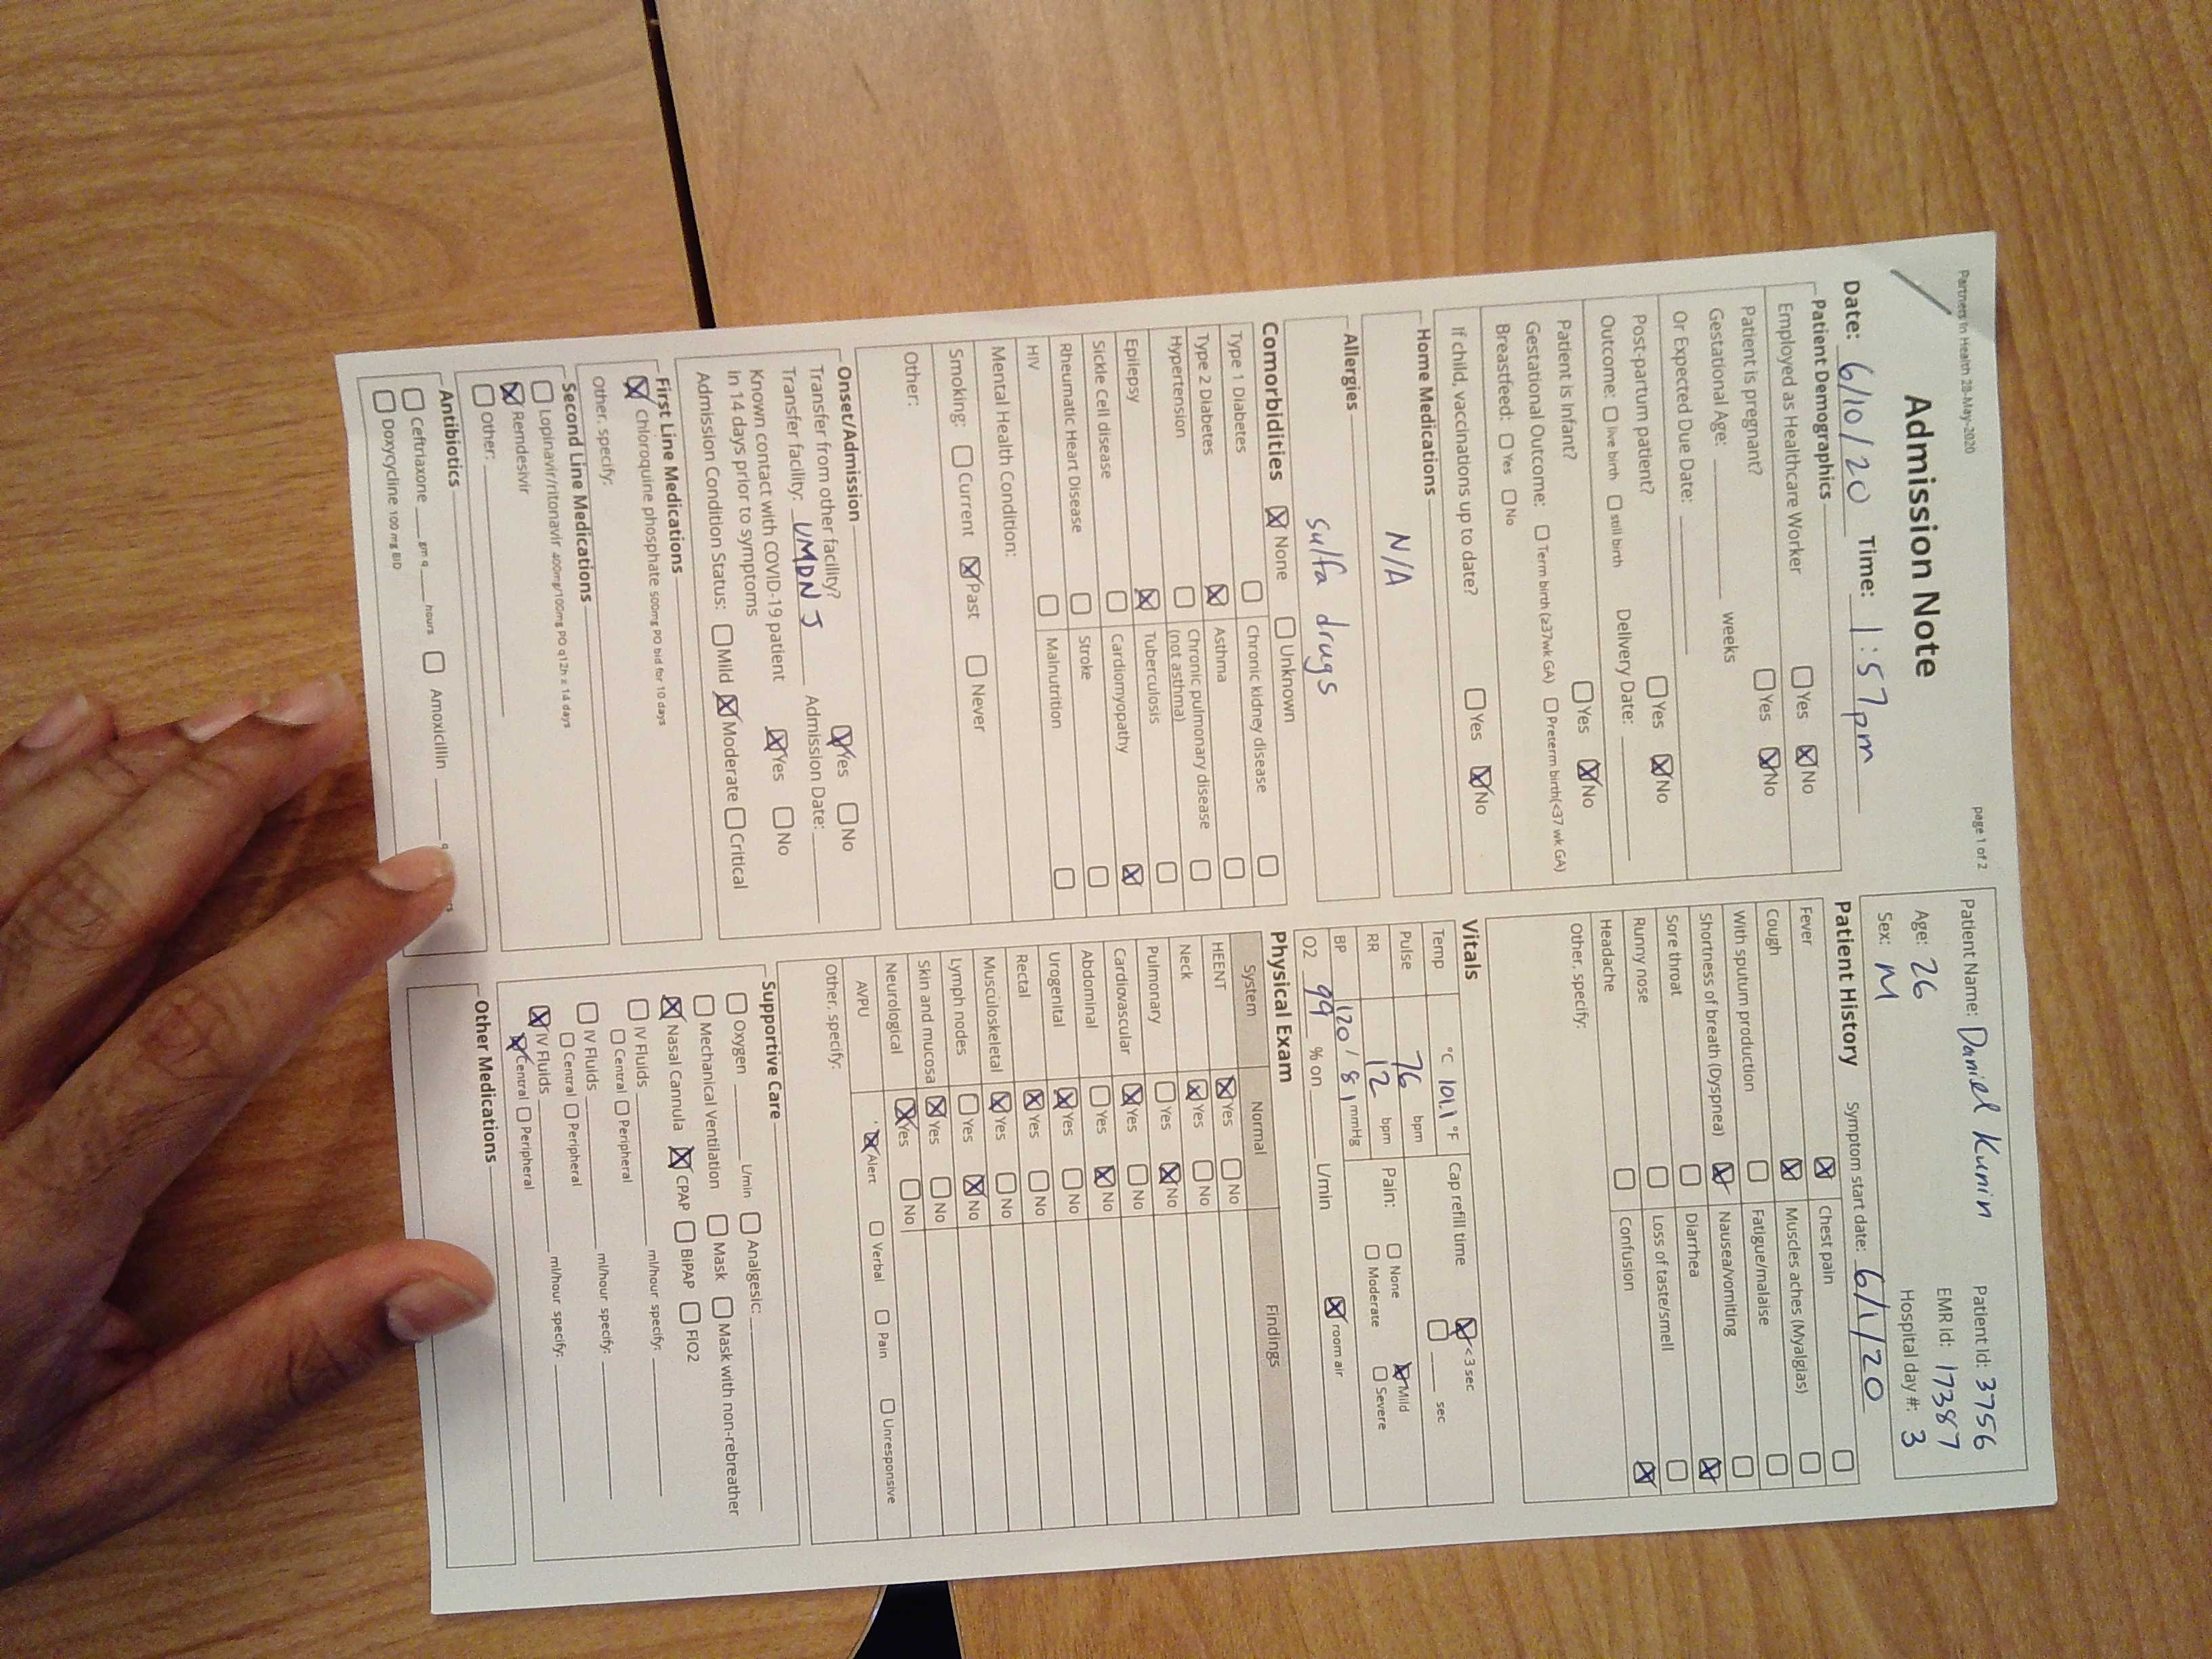 Partners In Health 28-May-2020
page 1 of 2
Admission Note
Date: 6/10/20 Time: 1:57pm
Patient Demographics
Employed as Healthcare Worker ☐Yes ☒No
Patient is pregnant? ☐Yes ☒No
Gestational Age: ______ weeks
Or Expected Due Date: ______
Post-partum patient? ☐Yes ☒No
Outcome: ☐live birth ☐still birth Delivery Date: ______
Patient is Infant? ☐Yes ☒No
Gestational Outcome: ☐Term birth (≥37wk GA) ☐Preterm birth(<37 wk GA)
Breastfeed: ☐Yes ☐No
If child, vaccinations up to date? ☐Yes ☒No
Home Medications
N/A
Allergies
sulfa drugs
Comorbidities ☒None ☐Unknown
Type 1 Diabetes ☐ Chronic kidney disease ☐
Type 2 Diabetes ☒ Asthma ☐
Hypertension ☐ Chronic pulmonary disease ☐
(not asthma)
Epilepsy ☒ Tuberculosis ☐
Sickle Cell disease ☐ Cardiomyopathy ☒
Rheumatic Heart Disease ☐ Stroke ☐
HIV ☐ Malnutrition ☐
Mental Health Condition:
Smoking: ☐Current ☒Past ☐Never
Other:
Onset/Admission
Transfer from other facility? ☒Yes ☐No
Transfer facility: UMDNJ Admission Date: ______
Known contact with COVID-19 patient ☒Yes ☐No
in 14 days prior to symptoms
Admission Condition Status: ☐Mild ☒Moderate ☐Critical
First Line Medications
☒ Chloroquine phosphate 500mg PO bid for 10 days
Other, specify:
Second Line Medications
☐Lopinavir/ritonavir 400mg/100mg PO q12h x 14 days
☒Remdesivir
☐Other: ______
Antibiotics
☐Ceftriaxone ____ gm q ____ hours ☐ Amoxicillin ____ q
☐Doxycycline 100 mg BID
Patient Name: Daniel Kunin Patient Id: 3756
Age: 26 EMR Id: 17387
Sex: M Hospital day #: 3
Patient History Symptom start date: 6/1/20
Fever ☒ Chest pain ☐
Cough ☒ Muscles aches (Myalgias) ☐
With sputum production ☐ Fatigue/malaise ☐
Shortness of breath (Dyspnea) ☒ Nausea/vomiting ☐
Sore throat ☐ Diarrhea ☒
Runny nose ☐ Loss of taste/smell ☐
Headache ☐ Confusion ☒
Other, specify:
Vitals
Temp °C 101.1 °F Cap refill time ☒<3 sec
Pulse 76 bpm ☐ ____ sec
RR 12 bpm Pain: ☐None ☒Mild
BP 120/81 mmHg ☐Moderate ☐Severe
O2 99 % on ______ L/min ☒room air
Physical Exam
System Normal Findings
HEENT ☒Yes ☐No
Neck ☒Yes ☐No
Pulmonary ☐Yes ☒No
Cardiovascular ☒Yes ☐No
Abdominal ☐Yes ☒No
Urogenital ☒Yes ☐No
Rectal ☒Yes ☐No
Musculoskeletal ☒Yes ☐No
Lymph nodes ☐Yes ☒No
Skin and mucosa ☒Yes ☐No
Neurological ☒Yes ☐No
AVPU ☒Alert ☐Verbal ☐Pain ☐Unresponsive
Other, specify:
Supportive Care
☐Oxygen ______ L/min ☐Analgesic: ______
☐Mechanical Ventilation ☐Mask ☐Mask with non-rebreather
☒Nasal Cannula ☒CPAP ☐BiPAP ☐FIO2
☐IV Fluids ______ ml/hour specify: ______
☐Central ☐Peripheral
☐IV Fluids ______ ml/hour specify: ______
☐Central ☐Peripheral
☒IV Fluids ______ ml/hour specify: ______
☒Central ☐Peripheral
Other Medications